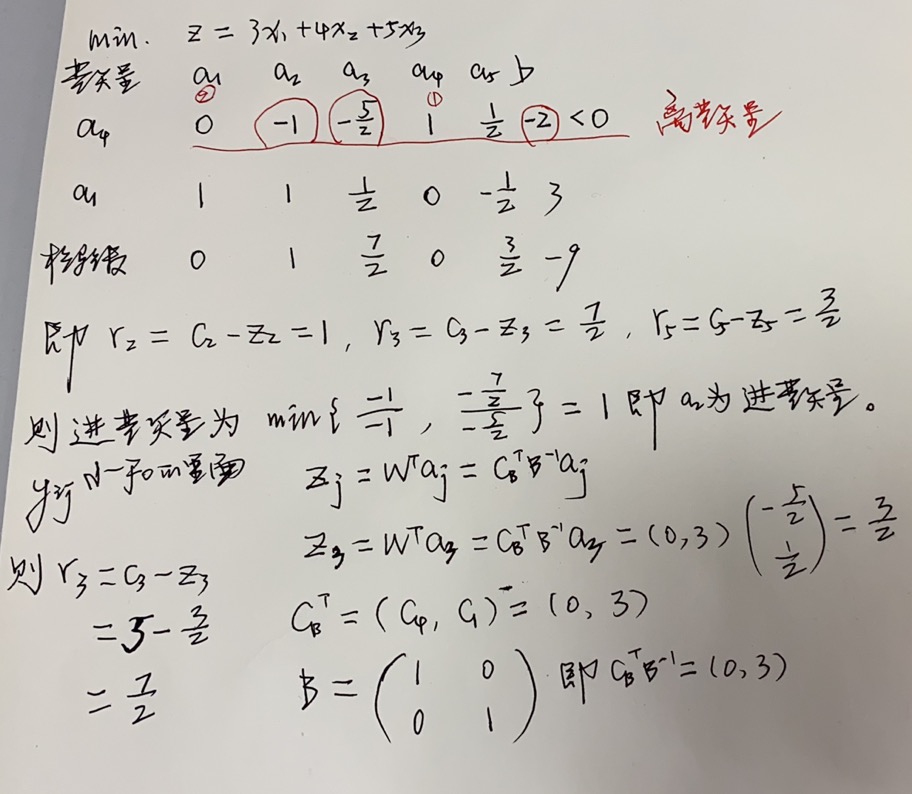 min. z = 3x₁+4x₂+5x₃
基矢量 a₁ a₂ a₃ a₄ a₅ b
② ①
a₄ 0 -1 -5/2 1 1/2 -2 <0 离基矢量
a₁ 1 1 1/2 0 -1/2 3
检验数 0 1 7/2 0 3/2 -9
即 r₂ = c₂-z₂ = 1, r₃ = c₃-z₃ = 7/2, r₅ = c₅-z₅ = 3/2
则进基矢量为 min{ -1/-1 , -7/2/-5/2 } = 1 即 a₂为进基矢量。
yᵣⱼ 小于0的里面
zⱼ = Wᵀaⱼ = C_BᵀB⁻¹aⱼ
z₃ = Wᵀa₃ = C_BᵀB⁻¹a₃ = (0,3) (-5/2 1/2) = 3/2
则 r₃ = c₃-z₃
= 5-3/2
= 7/2
C_Bᵀ = (C₄, C₁)⁻ = (0, 3)
B = (1 0
0 1) 即 C_BᵀB⁻¹ = (0,3)